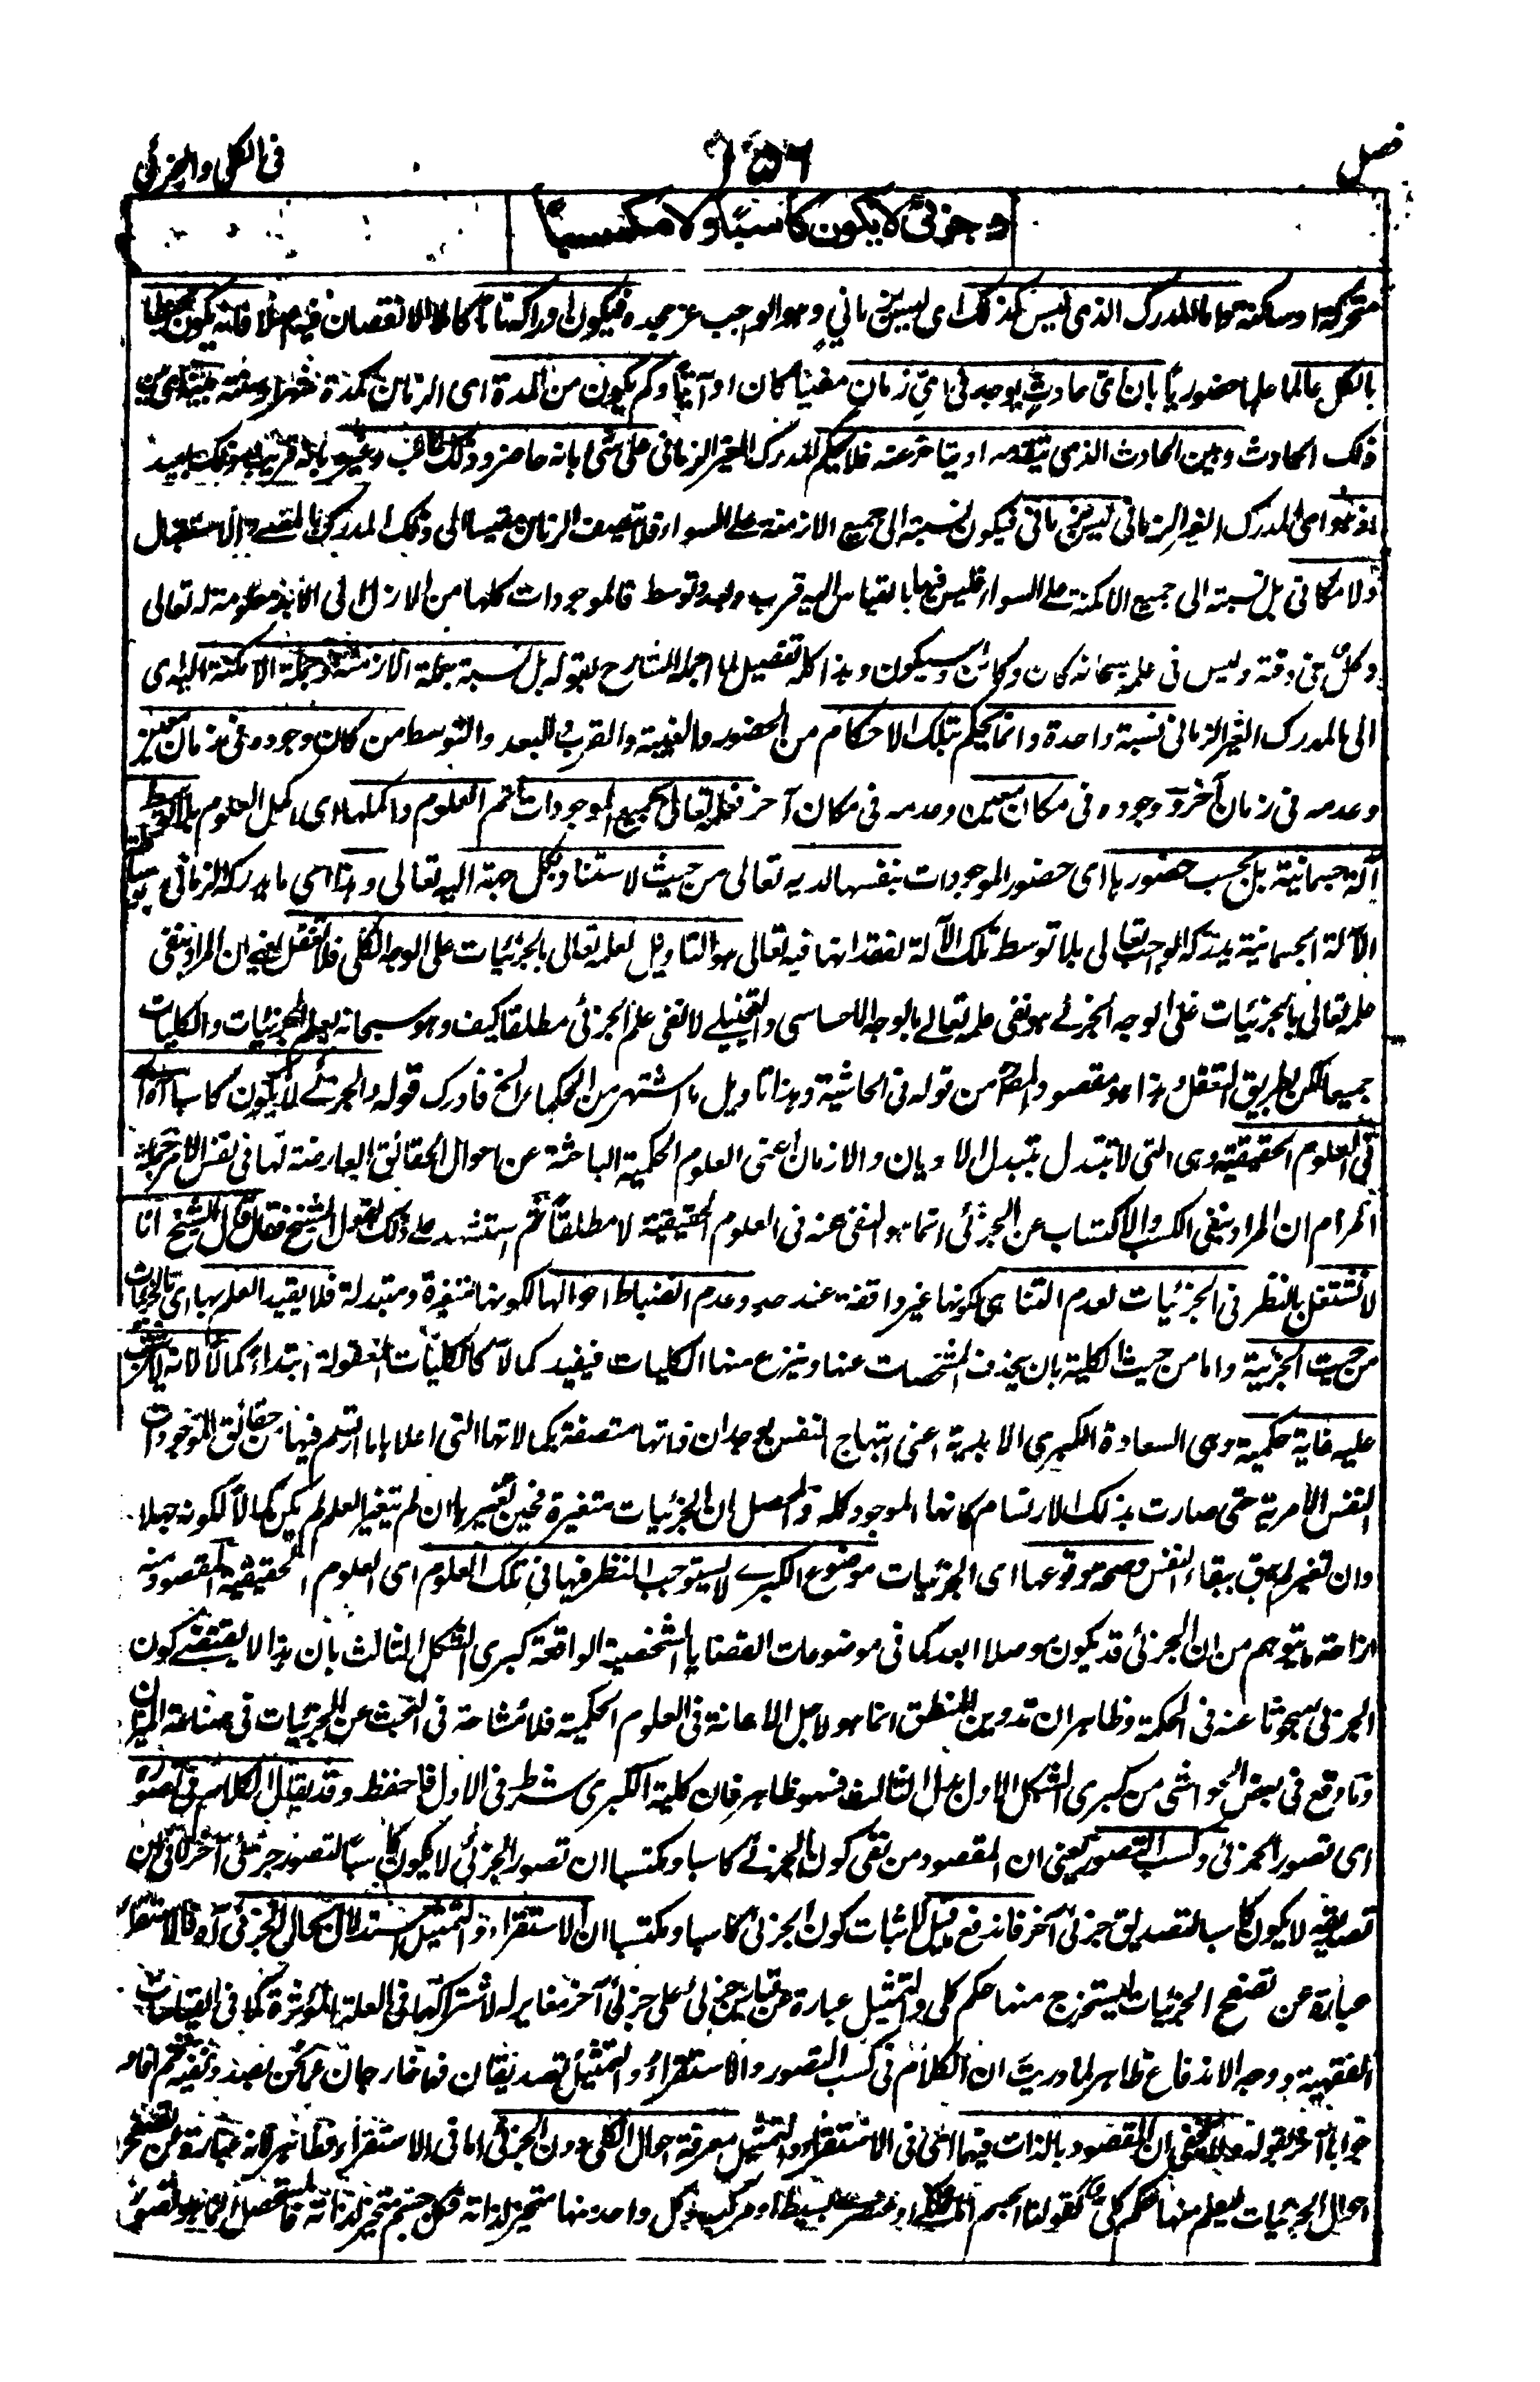 فصل
١٥٦
فی الکلی والجزئی
و جزئی لا یکون کاسبا ولا مکتسبا
متحرکة او ساکنة واما المدرک الذی لیس کذلک ای لیس بزمانی وهو الواجب عز مجده فیکون ادراکه تاما کاملا لا نقصان فیه اصلا فانه یکون محیطا
بالکل عالما علما حضوریا بان ای حادث یوجد فی ای زمان مضیا کان او آتیا وکم یکون من المدة ای الزمان کمدة شهر او سنة بینه ای بین
ذلک الحادث وبین الحادث الذی یتقدمه او یتاخر عنه فلا یحکم المدرک الغیر الزمانی علی شی بانه حاضر وذلک غائب وغیره بانه قریب وذلک بعید
اذ هو ای المدرک الغیر الزمانی لیس بزمانی فیکون نسبة الی جمیع الازمنة علی السواء فلا یتصف الزمان مقیسا الی ذلک المدرک بالمضی والاستقبال
ولا مکانی بل نسبته الی جمیع الامکنة علی السواء فلیس فیها بالقیاس الیه قرب وبعد وتوسط فالموجودات کلها من الازل الی الابد معلومة له تعالی
وکل فی وقته ولیس فی علمه سبحانه کان وکائن وسیکون وهذا کله تفصیل لما اجمله الشارح بقوله بل نسبة جملة الازمنة وجملة الامکنة الیه ای
الی المدرک الغیر الزمانی نسبة واحدة وانما یحکم بتلک الاحکام من الحضور والغیبة والقرب والبعد والتوسط من کان وجوده فی زمان معین
وعدمه فی زمان آخر ووجوده فی مکان معین وعدمه فی مکان آخر فعلمه تعالی بجمیع الموجودات اتم العلوم واکملها ای اکمل العلوم بلا توسط
آلة جسمانیة بل بحسب حضورها ای حضور الموجودات بنفسها لدیه تعالی من حیث لاستناد بکل جهة الیه تعالی وهذا ای ما یدرکه الزمانی بتوسط
الآلة الجسمانیة یدرکه الواجب تعالی بلا توسط تلک الآلة لفقدانها فیه تعالی هو التاویل لعلمه تعالی بالجزئیات علی الوجه الکلی فلا تغفل یعنی ان المراد بنفی
علمه تعالی بالجزئیات علی الوجه الجزئی هو نفی علمه تعالی بالوجه الاحساسی والتخیلی لا نفی علم الجزئی مطلقا کیف وهو سبحانه یعلم الجزئیات والکلیات
جمیعا لکن بطریق التعقل وهذا هو مقصود المص من قوله فی الحاشیة وهذا تاویل ما اشتهر من الحکماء الخ فادرک قوله والجزئی لا یکون کاسبا آه
فی العلوم الحقیقیة وهی التی لا تتبدل بتبدل الادیان والازمان اعنی العلوم الحکمیة الباحثة عن احوال الحقائق العارضة لها فی نفس الامر
المرام ان المراد بنفی الکسب والاکتساب عن الجزئی انما هو النفی عنه فی العلوم الحقیقیة لا مطلقا ثم استشهد علی ذلک بقول الشیخ فقال قال الشیخ انا
لا نشتغل بالنظر فی الجزئیات لعدم التناهی لکونها غیر واقفة عند حد وعدم انضباط احوالها لکونها متغیرة ومتبدلة فلا یفید العلم بها ای بالجزئیات
من حیث الجزئیة واما من حیث الکلیة بان یحذف المشخصات عنها وینزع منها الکلیات فیفید کمالا کالکلیات المعقولة ابتداء کمالا لانه لا یترتب
علیه غایة حکمیة وهی السعادة الکبری الابدیة اعنی ابتهاج النفس بوجدان ذاتها متصفة بکمالاتها التی اعلاها ما ارتسم فیها من حقائق الموجودات
النفس الامریة حتی صارت بذلک الارتسام کانها الموجود کله والحاصل ان الجزئیات متغیرة فحین تغیرها ان لم یتغیر العلم لم یکن کمالا لکونه جهلا
وان تغیر لم یبق ببقاء النفس وصحة وقوعها ای الجزئیات موضوع الکبری لا یستوجب النظر فیها فی تلک العلوم ای العلوم الحقیقیة المقصود منه
ازاحة ما یتوهم من ان الجزئی قد یکون موصلا ابعد کما فی موضوعات القضایا الشخصیة الواقعة کبری الشکل الثالث بان هذا لا یقتضی کون
الجزئی مبحوثا عنه فی الحکمة وظاهر ان تدوین المنطق انما هو لاجل الاعانة فی العلوم الحکمیة فلا مشاحة فی البحث عن الجزئیات فی صناعة المیزان
وما وقع فی بعض الحواشی من کبری الشکل الاول بدل الثالث فسهو ظاهر فان کلیة الکبری شرط فی الاول فاحفظ وقد یقال الکلام فی تصوره
ای تصور الجزئی وکسب التصور یعنی ان المقصود من نفی کون الجزئی کاسبا ومکتسبا ان تصور الجزئی لا یکون کاسبا لتصور جزئی آخر لا فی ان
تصدیقه لا یکون کاسبا لتصدیق جزئی آخر فاندفع ما قیل لاثبات کون الجزئی کاسبا ومکتسبا ان الاستقراء والتمثیل استدلال بحال الجزئی آه فالاستقراء
عبارة عن تصفح الجزئیات لیستخرج منها حکم کلی والتمثیل عبارة عن قیاس جزئی علی جزئی آخر مغایر له لاشتراکهما فی العلة المؤثرة کما فی القیاسات
الفقهیة ووجه الاندفاع ظاهر لما دریت ان الکلام فی کسب التصور والاستقراء والتمثیل تصدیقان فهما خارجان عما نحن بصدد نفیه ثم افاد
جوابا آخر بقوله ولا یخفی ان المقصود بالذات فیهما ای فی الاستقراء والتمثیل معرفة احوال الکلی دون الجزئی اما فی الاستقراء فظاهر لانه عبارة عن تصفح
احوال الجزئیات لیعلم منها حکم کلی کقولنا الجسم اما فلکی او عنصر بسیط او مرکب وکل واحد منها متحیز لذاته فکل جسم متحیز لذاته